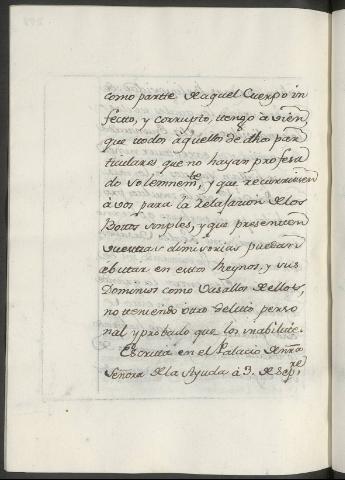 como parte de aquel Cuerpo in
fecto, y corrupto, tengo à vien
que todos aquellos de dhos par
ticulares que no hayan profesa
do solemnem.te, y que recurriesen
à vos para la Relajacion de los
Votos simples, y que presenten
vuestras dimisorias puedan
abitar en estos Reynos, y sus
Dominios como Vasallos de ellos,
no teniendo otro delito perso
nal y probado que los inabilite.
Escrita en el Palacio de nra
Señora de la Ayuda à 3. de Sep.re